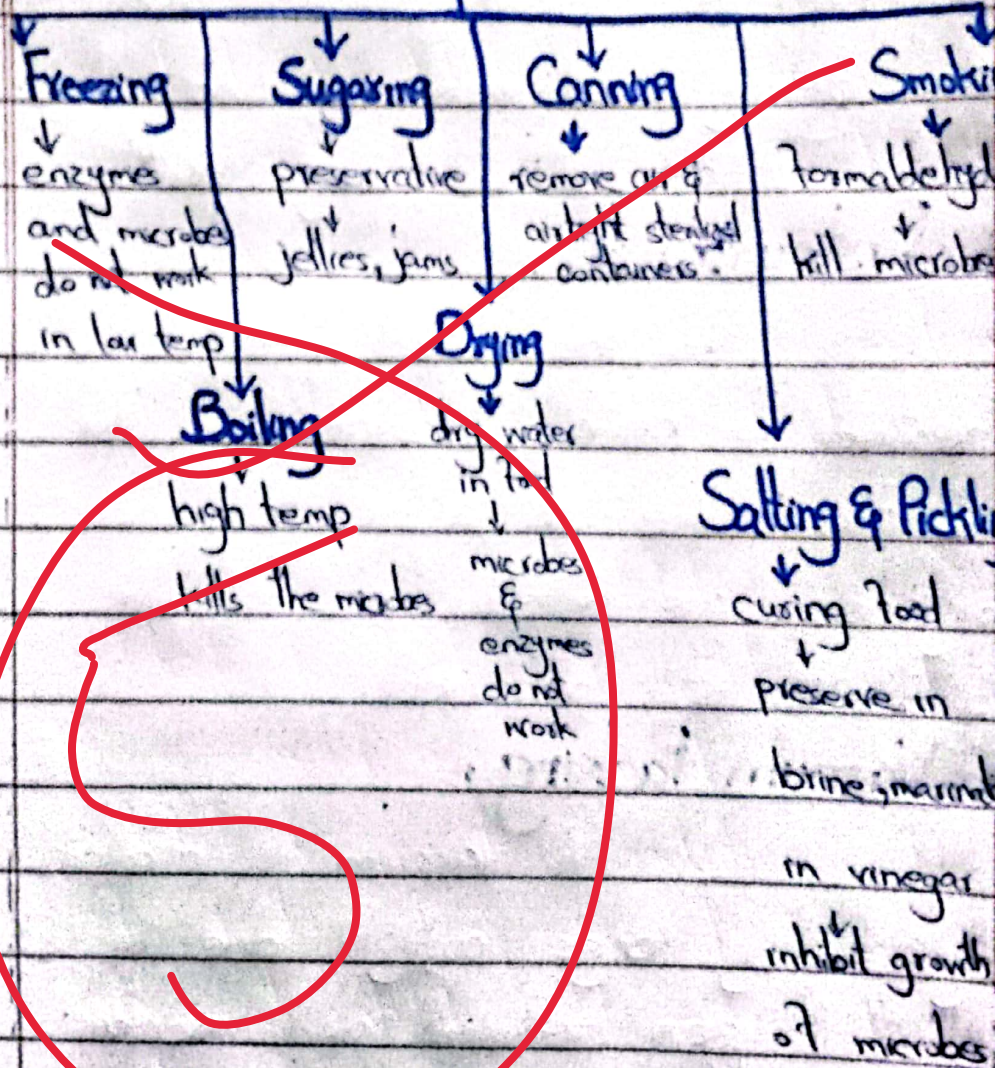 Freezing
enzymes
and microbes
do not work
in low temp
Sugaring
preservative
jellies, jams
Canning
remove air &
airtight sterilized
containers.
Smoki
Formaldehyd
kill microbe
Boiling
high temp
kills the microbes
Drying
dry water
in food
microbes
&
enzymes
do not
work
Salting & Pickli
curing food
preserve in
brine; marinat
in vinegar
inhibit growth
of microbes